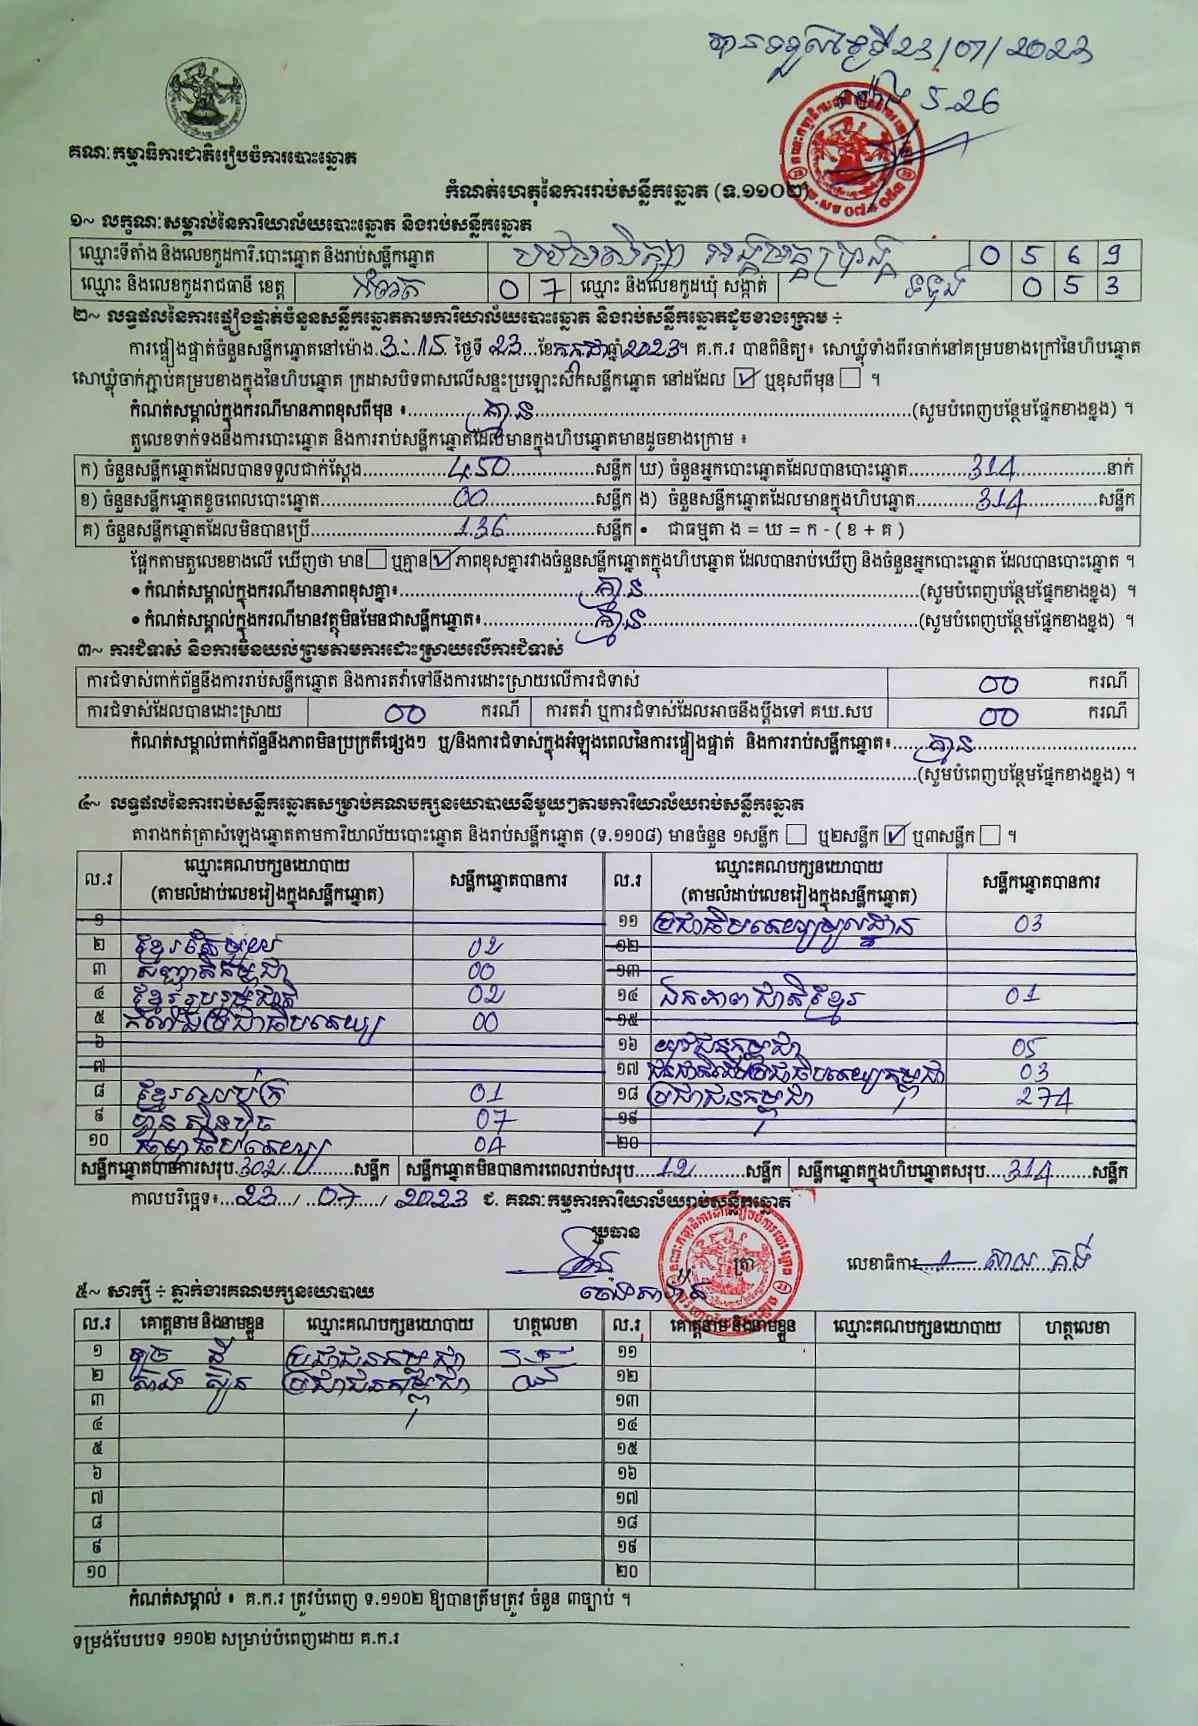 បានទទួលថ្ងៃទី 23/07/2023
ម៉ោង 5.26
គណៈកម្មាធិការជាតិរៀបចំការបោះឆ្នោត
កំណត់ហេតុនៃការរាប់សន្លឹកឆ្នោត (ទ.១១០២)
១~ លក្ខណៈសម្គាល់នៃការិយាល័យបោះឆ្នោត និងរាប់សន្លឹកឆ្នោត
ឈ្មោះទីតាំង និងលេខកូដការិ.បោះឆ្នោត និងរាប់សន្លឹកឆ្នោត បឋមសិក្សា 0 5 6 9
ឈ្មោះ និងលេខកូដរាជធានី ខេត្ត កំពត 0 7 ឈ្មោះ និងលេខកូដឃុំ សង្កាត់ 0 5 3
២~ លទ្ធផលនៃការផ្ទៀងផ្ទាត់ចំនួនសន្លឹកឆ្នោតតាមការិយាល័យបោះឆ្នោត និងរាប់សន្លឹកឆ្នោតដូចខាងក្រោម ÷
ការផ្ទៀងផ្ទាត់ចំនួនសន្លឹកឆ្នោតនៅម៉ោង 3:15 ថ្ងៃទី 23 ខែកក្កដាឆ្នាំ2023។ គ.ក.រ បានពិនិត្យ៖ សោឃ្លុំទាំងពីរចាក់នៅគម្របខាងក្រៅនៃហិបឆ្នោត
សោឃ្លុំចាក់ភ្ជាប់គម្របខាងក្នុងនៃហិបឆ្នោត ក្រដាសបិទពាសលើសន្ទះប្រឡោះសៀតសន្លឹកឆ្នោត នៅដដែល ☑ ឬខុសពីមុន ☐ ។
កំណត់សម្គាល់ក្នុងករណីមានភាពខុសពីមុន ៖ គ្មាន (សូមបំពេញបន្ថែមផ្នែកខាងខ្នង) ។
តួលេខទាក់ទងនឹងការបោះឆ្នោត និងការរាប់សន្លឹកឆ្នោតដែលមានក្នុងហិបឆ្នោតមានដូចខាងក្រោម ៖
ក) ចំនួនសន្លឹកឆ្នោតដែលបានទទួលជាក់ស្តែង 450 សន្លឹក ឃ) ចំនួនអ្នកបោះឆ្នោតដែលបានបោះឆ្នោត 314 នាក់
ខ) ចំនួនសន្លឹកឆ្នោតខូចពេលបោះឆ្នោត 00 សន្លឹក ង) ចំនួនសន្លឹកឆ្នោតដែលមានក្នុងហិបឆ្នោត 314 សន្លឹក
គ) ចំនួនសន្លឹកឆ្នោតដែលមិនបានប្រើ 136 សន្លឹក • ជាធម្មតា ង = ឃ = ក - ( ខ + គ )
ផ្អែកតាមតួលេខខាងលើ ឃើញថា មាន ☐ ឬគ្មាន ☑ ភាពខុសគ្នារវាងចំនួនសន្លឹកឆ្នោតក្នុងហិបឆ្នោត ដែលបានរាប់ឃើញ និងចំនួនអ្នកបោះឆ្នោត ដែលបានបោះឆ្នោត ។
• កំណត់សម្គាល់ក្នុងករណីមានភាពខុសគ្នា៖ គ្មាន (សូមបំពេញបន្ថែមផ្នែកខាងខ្នង) ។
• កំណត់សម្គាល់ក្នុងករណីមានវត្ថុមិនមែនជាសន្លឹកឆ្នោត៖ គ្មាន (សូមបំពេញបន្ថែមផ្នែកខាងខ្នង) ។
៣~ ការជំទាស់ និងការមិនយល់ព្រមតាមការដោះស្រាយលើការជំទាស់
ការជំទាស់ពាក់ព័ន្ធនឹងការរាប់សន្លឹកឆ្នោត និងការតវ៉ាទៅនឹងការដោះស្រាយលើការជំទាស់ 00 ករណី
ការជំទាស់ដែលបានដោះស្រាយ 00 ករណី ការតវ៉ា ឬការជំទាស់ដែលអាចនឹងប្តឹងទៅ គឃ.សប 00 ករណី
កំណត់សម្គាល់ពាក់ព័ន្ធនឹងភាពមិនប្រក្រតីផ្សេងៗ ឬ/និងការជំទាស់ក្នុងអំឡុងពេលនៃការផ្ទៀងផ្ទាត់ និងការរាប់សន្លឹកឆ្នោត៖ គ្មាន
(សូមបំពេញបន្ថែមផ្នែកខាងខ្នង) ។
៤~ លទ្ធផលនៃការរាប់សន្លឹកឆ្នោតសម្រាប់គណបក្សនយោបាយនីមួយៗតាមការិយាល័យរាប់សន្លឹកឆ្នោត
តារាងកត់ត្រាសំឡេងឆ្នោតតាមការិយាល័យបោះឆ្នោត និងរាប់សន្លឹកឆ្នោត (ទ.១១០៨) មានចំនួន ១សន្លឹក ☐ ឬ២សន្លឹក ☑ ឬ៣សន្លឹក ☐ ។
ល.រ ឈ្មោះគណបក្សនយោបាយ (តាមលំដាប់លេខរៀងក្នុងសន្លឹកឆ្នោត) សន្លឹកឆ្នោតបានការ ល.រ ឈ្មោះគណបក្សនយោបាយ (តាមលំដាប់លេខរៀងក្នុងសន្លឹកឆ្នោត) សន្លឹកឆ្នោតបានការ
១ ១១ ប្រជាធិបតេយ្យមូលដ្ឋាន 03
២ ខ្មែរតែមួយ 02 ១២
៣ សញ្ជាតិកម្ពុជា 00 ១៣
៤ ខ្មែររួបរួមជាតិ 02 ១៤ ឯកភាពជាតិខ្មែរ 01
៥ កម្លាំងប្រជាធិបតេយ្យ 00 ១៥
៦ ១៦ យុវជនកម្ពុជា 05
៧ ១៧ ជនជាតិដើមប្រជាធិបតេយ្យកម្ពុជា 03
៨ ខ្មែរឈប់ក្រ 01 ១៨ ប្រជាជនកម្ពុជា 274
៩ ហ្វ៊ុនស៊ិនប៉ិច 07 ១៩
១០ ធម្មាធិបតេយ្យ 04 ២០
សន្លឹកឆ្នោតបានការសរុប 302 សន្លឹក សន្លឹកឆ្នោតមិនបានការពេលរាប់សរុប 12 សន្លឹក សន្លឹកឆ្នោតក្នុងហិបឆ្នោតសរុប 314 សន្លឹក
កាលបរិច្ឆេទ៖ 23 / 07 / 2023 ជ. គណៈកម្មការការិយាល័យរាប់សន្លឹកឆ្នោត
ប្រធាន
ត្រា លេខាធិការ
៥~ សាក្សី ÷ ភ្នាក់ងារគណបក្សនយោបាយ
ល.រ គោត្តនាម និងនាមខ្លួន ឈ្មោះគណបក្សនយោបាយ ហត្ថលេខា ល.រ គោត្តនាម និងនាមខ្លួន ឈ្មោះគណបក្សនយោបាយ ហត្ថលេខា
១ ប្រជាជនកម្ពុជា ១១
២ ប្រជាជនកម្ពុជា ១២
៣ ១៣
៤ ១៤
៥ ១៥
៦ ១៦
៧ ១៧
៨ ១៨
៩ ១៩
១០ ២០
កំណត់សម្គាល់ ៖ គ.ក.រ ត្រូវបំពេញ ទ.១១០២ ឱ្យបានត្រឹមត្រូវ ចំនួន ៣ច្បាប់ ។
ទម្រង់បែបបទ ១១០២ សម្រាប់បំពេញដោយ គ.ក.រ